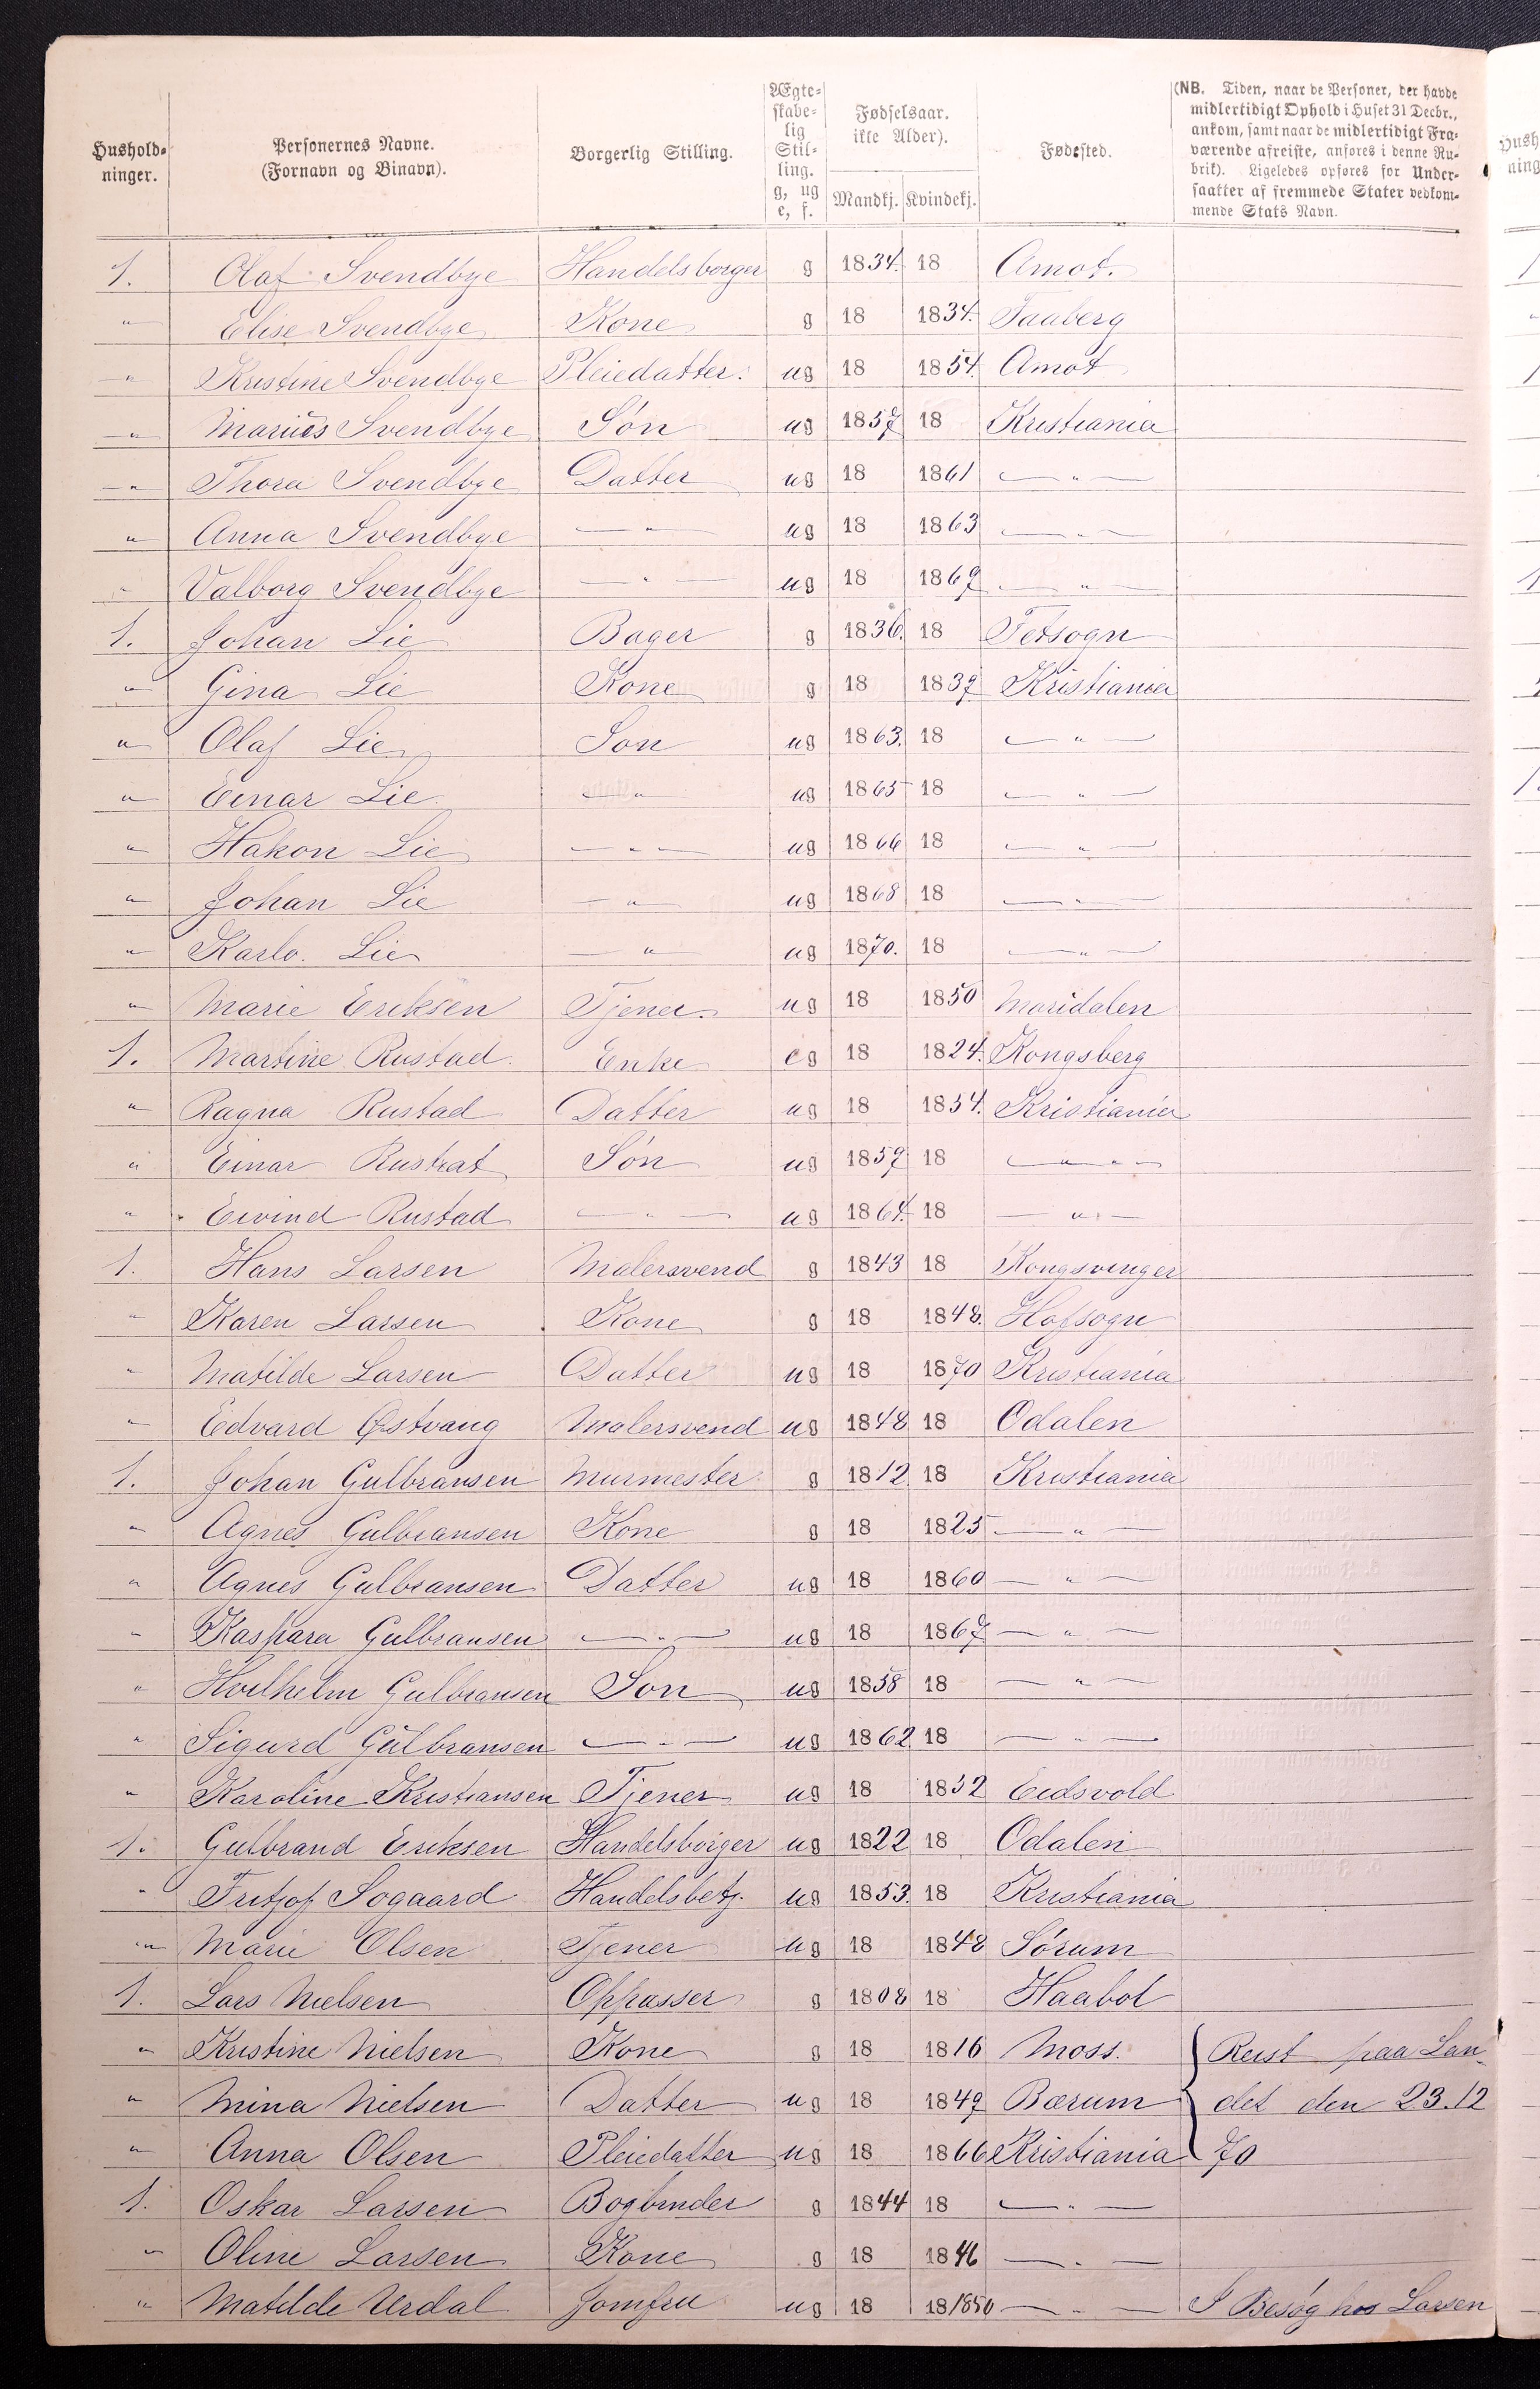 Hushold-
ninger.
Personernes Navne.
(Fornavn og Binavn).
Borgerlig Stilling.
Ægte-
skabe-
lig
Stil-
ling.
g, ug
e, f.
Fødselsaar.
ikke Alder).
Mandkj. Kvindekj.
Fødested.
(NB. Tiden, naar de Personer, der havde
midlertidigt Ophold i Huset 31 Decbr.,
ankom, samt naar de midlertidigt Fra-
værende afreiste, anføres i denne Ru-
brik). Ligeledes opføres for Under-
saatter af fremmede Stater vedkom-
mende Stats Navn.
1. Olaf Svendbye Handelsborger g 1834. 18 Amot.
" Elise Svendbye Kone g 18 1834. Faaberg
" Kristine Svendbye Pleiedatter. ug 18 1854. Amot
" Marius Svendbye Søn ug 1857 18 Kristiania
" Thora Svendbye Datter ug 18 1861 — " —
" Anna Svendbye — " — ug 18 1863 — " —
" Valborg Svendbye — " — ug 18 1869 — " —
1. Johan Lie Bager g 1836. 18 Fetsogn
" Gina Lie Kone g 18 1839 Kristiania
" Olaf Lie Son ug 1863. 18 — " —
" Einar Lie — " ug 1865 18 — " —
" Hakon Lie — " — ug 1866 18 — " —
" Johan Lie — " — ug 1868 18 — " —
" Karlo. Lie — " — ug 1870. 18 — " —
" Marie Eriksen Tjener. ug 18 1850 Maridalen
1. Martine Rustad. Enke eg 18 1824. Kongsberg
" Ragna Rustad Datter ug 18 1854. Kristiania
" Einar Rustat Søn ug 1859 18 — " —
" Eivind Rustad — " — ug 1864. 18 — " —
1. Hans Larsen Malersvend g 1843 18 Kongsvinger
" Karen Larsen Kone g 18 1848. Hofsogn
" Matilde Larsen Datter ug 18 1870 Kristiania
" Edvard Østvang Malersvend ug 1848 18 Odalen
1. Johan Gulbransen Murmester g 1812 18 Kristiania
" Agnes Gulbransen Kone g 18 1825 — " —
" Agnes Gulbransen Datter ug 18 1860 — " —
" Kaspara Gulbransen — " — ug 18 1867 — " —
" Hvilhelm Gulbransen Son ug 1858 18 — " —
" Sigurd Gulbransen — " — ug 1862 18 — " —
" Karoline Kristiansen Tjener ug 18 1832 Eidsvold
1. Gulbrand Eriksen Handelsborger ug 1822 18 Odalen
" Fritjof Sogaard Handelsbetj. ug 1853. 18 Kristiania
" Marie Olsen Tjener ug 18 1848 Sørum
1. Lars Nielsen Oppasser g 1808 18 Haabol
" Kristine Nielsen Kone g 18 1816 Moss. Reist paa Lan-
" Mina Nielsen Datter ug 18 1849 Bærum det den 23.12
" Anna Olsen Pleiedatter ug 18 1866 Kristiania 70
1. Oskar Larsen Bogbinder g 1844 18 — " —
" Oline Larsen Kone g 18 1846 — " —
" Matilde Urdal Jomfru ug 18 18/850 — " — I Besøg hos Larsen